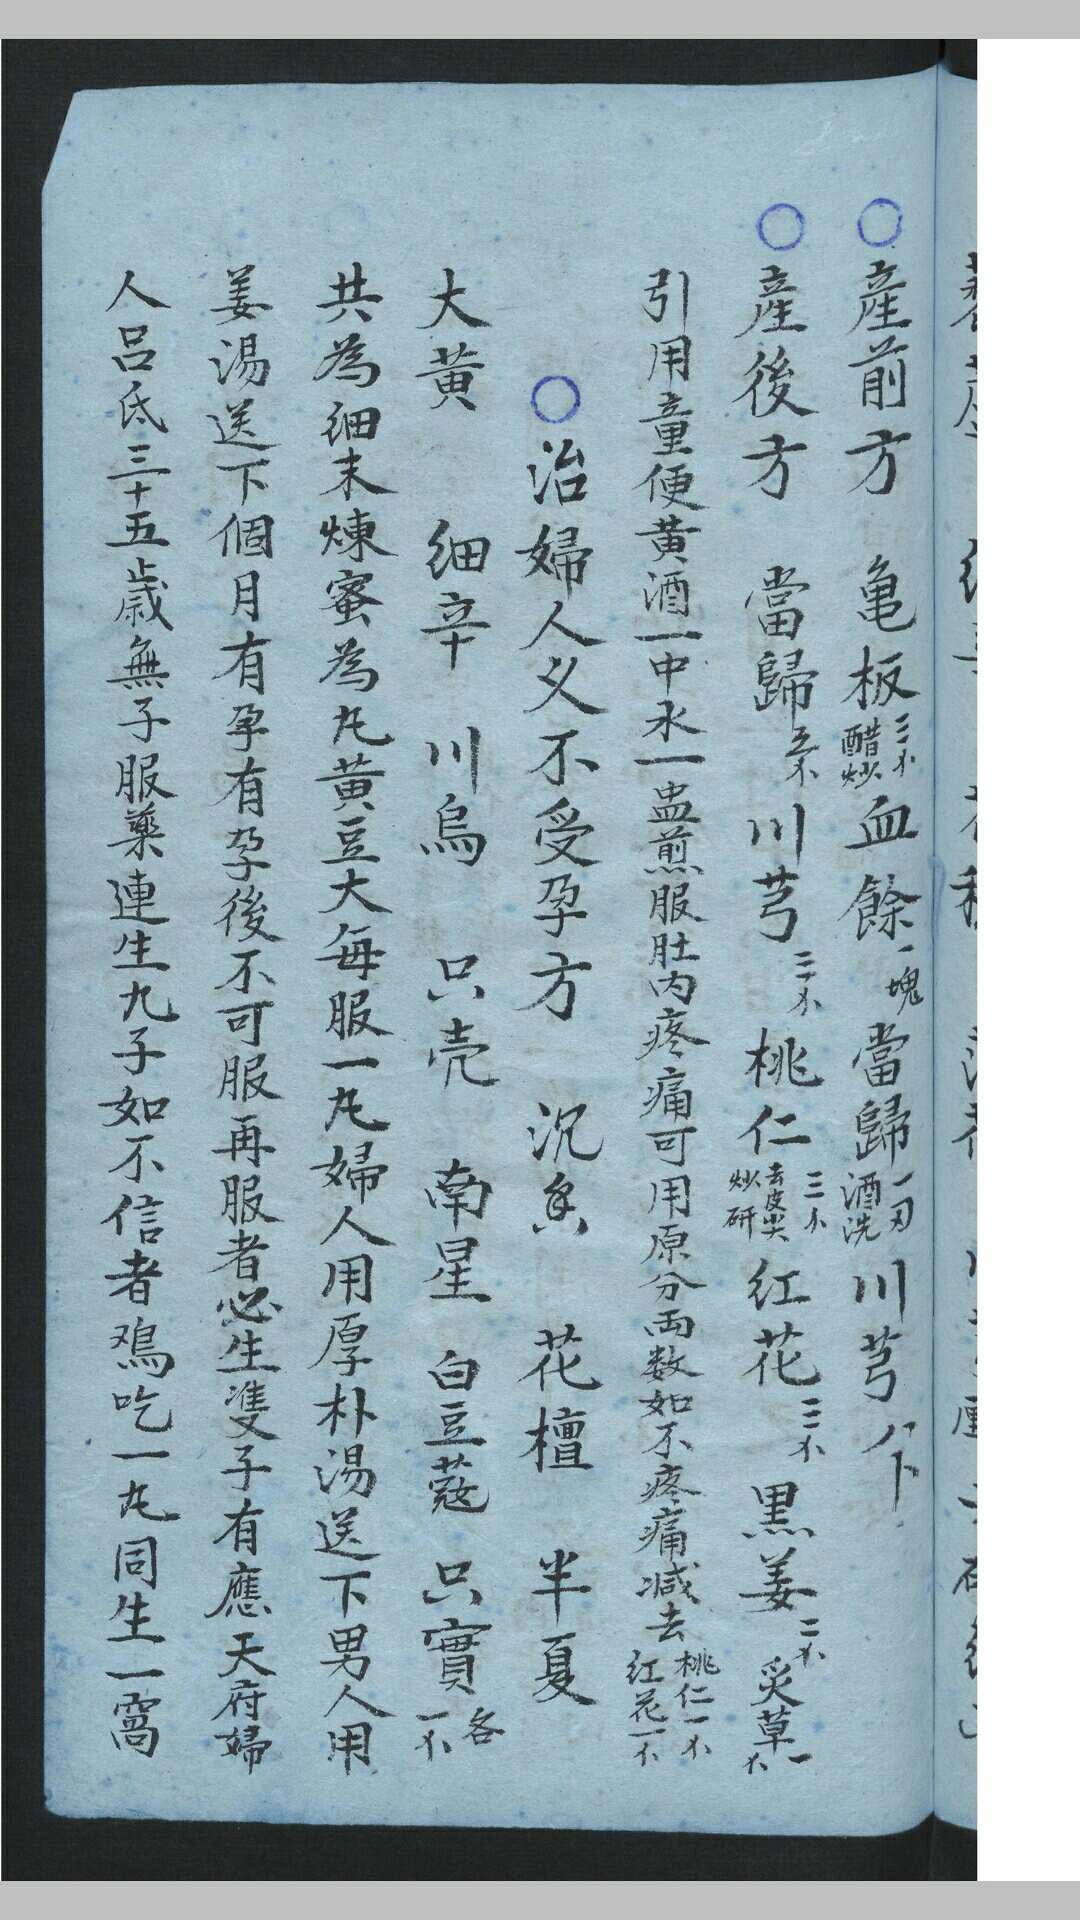 産前方 亀板三不醋炒 血餘一塊 當歸一刃酒洗 川芎八卜
産後方 當歸五不 川芎三不 桃仁三不去皮尖炒研 红花三不 黒姜二不 炙草一不
引用童便黄酒一中水一盅煎服肚内疼痛可用原分両数如不疼痛减去桃仁一不红花一不
治婦人乂不受孕方 沉香 花檀 半夏
大黄 细辛 川烏 只壳 南星 白豆蔻 只實各一不
共為细末煉蜜為丸黄豆大每服一丸婦人用厚朴湯送下男人用
姜湯送下個月有孕有孕後不可服再服者必生隻子有應天府婦
人吕氏三十五歳無子服藥連生九子如不信者鳮吃一丸同生一窩